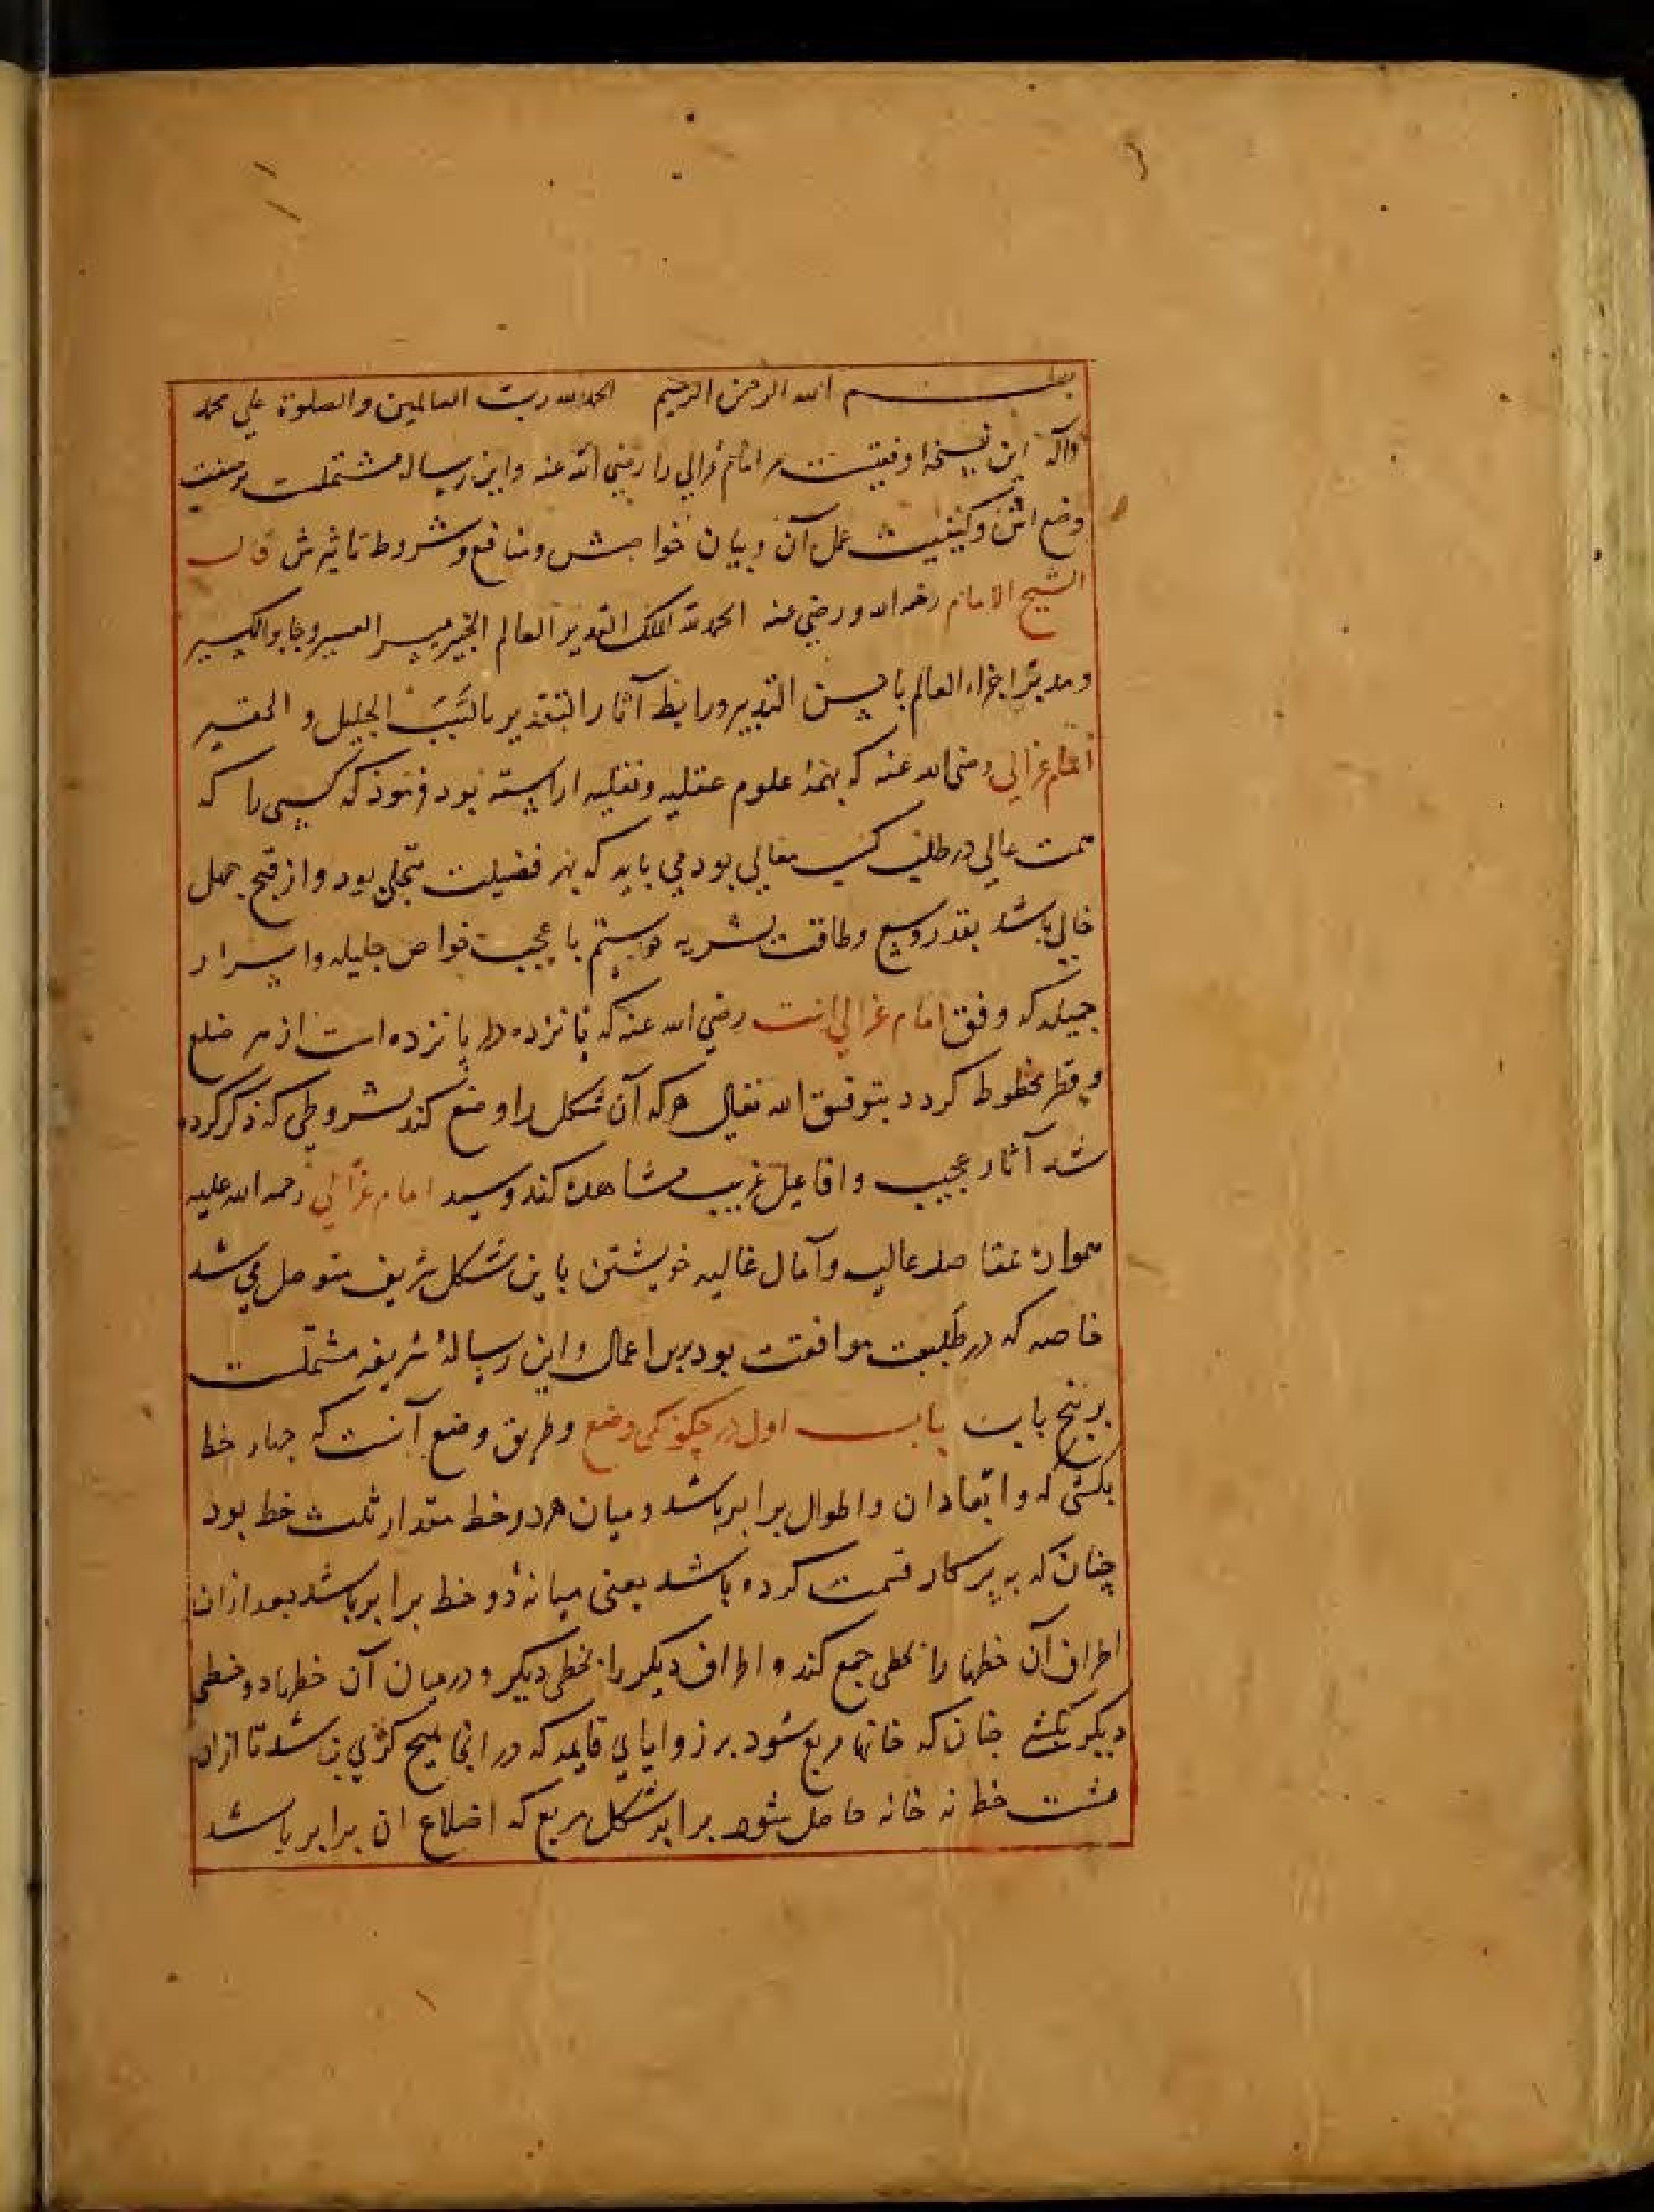 بسم الله الرحمن الرحیم الحمد لله رب العالمین والصلوة علی محمد
وآله این نسخهٔ وفقیست مر امام غزالی را رضی الله عنه واین رساله مشتملست بر صفت
وضع این وکیفیت عمل آن وبیان خواصش ومنافع وشروط تاثیرش قال
الشیخ الامام رحمه الله ورضی عنه الحمد لله الملک القدیر العالم الخبیر میسر العسیر وجابر الکسیر
ومدبر اجزاء العالم باحسن التدبیر ورابط آثار التقدیر بالسبب الجلیل والحقیر
امام غزالی رضی الله عنه که بهمهٔ علوم عقلیه ونقلیه اراسته بود فرمود که کسی را که
همت عالی در طلب کسب معالی بود می باید که بهر فضیلت متحلی بود واز قبح جهل
خالی باشد بقدر وسع وطاقت بشریه عجیب خواص جلیله واسرار
جمیله که وفق امام غزالی است رضی الله عنه که پانزده در پانزده است از هر ضلع
وقطر مخطوط کردد بتوفیق الله تعالی هرکه آن شکل را وضع کند بشروطی که ذکر کرده
شد آثار عجیب وافاعیل غریب مشاهده کند وسید امام غزالی رحمه الله علیه
همواره بمقاصد عالیه وآمال غالیه خویشتن باین شکل شریف متوصل می شد
خاصه که در طلب موافقت بود برین اعمال واین رسالهٔ شریفه مشتملست
بر پنج باب باب اول در چکونکی وضع وطریق وضع آنست که چهار خط
بکشی که وابعاد ان واطوال برابر باشد ومیان هر دو خط مقدار ثلث خط بود
چنان که به پرکار قسمت کرده باشد یعنی میانهٔ دو خط برابر باشد بعد ازان
اطراف آن خطها را بخطی جمع کند واطراف دیکر را بخطی دیکر ودرمیان آن خطها دو خطی
دیکر بکشی چنان که خانها مربع شود بر زوایای قایمه که در انجا هیچ کژی نباشد تا ازان
هشت خط نه خانه حاصل شود برابر شکل مربع که اضلاع ان برابر باشد